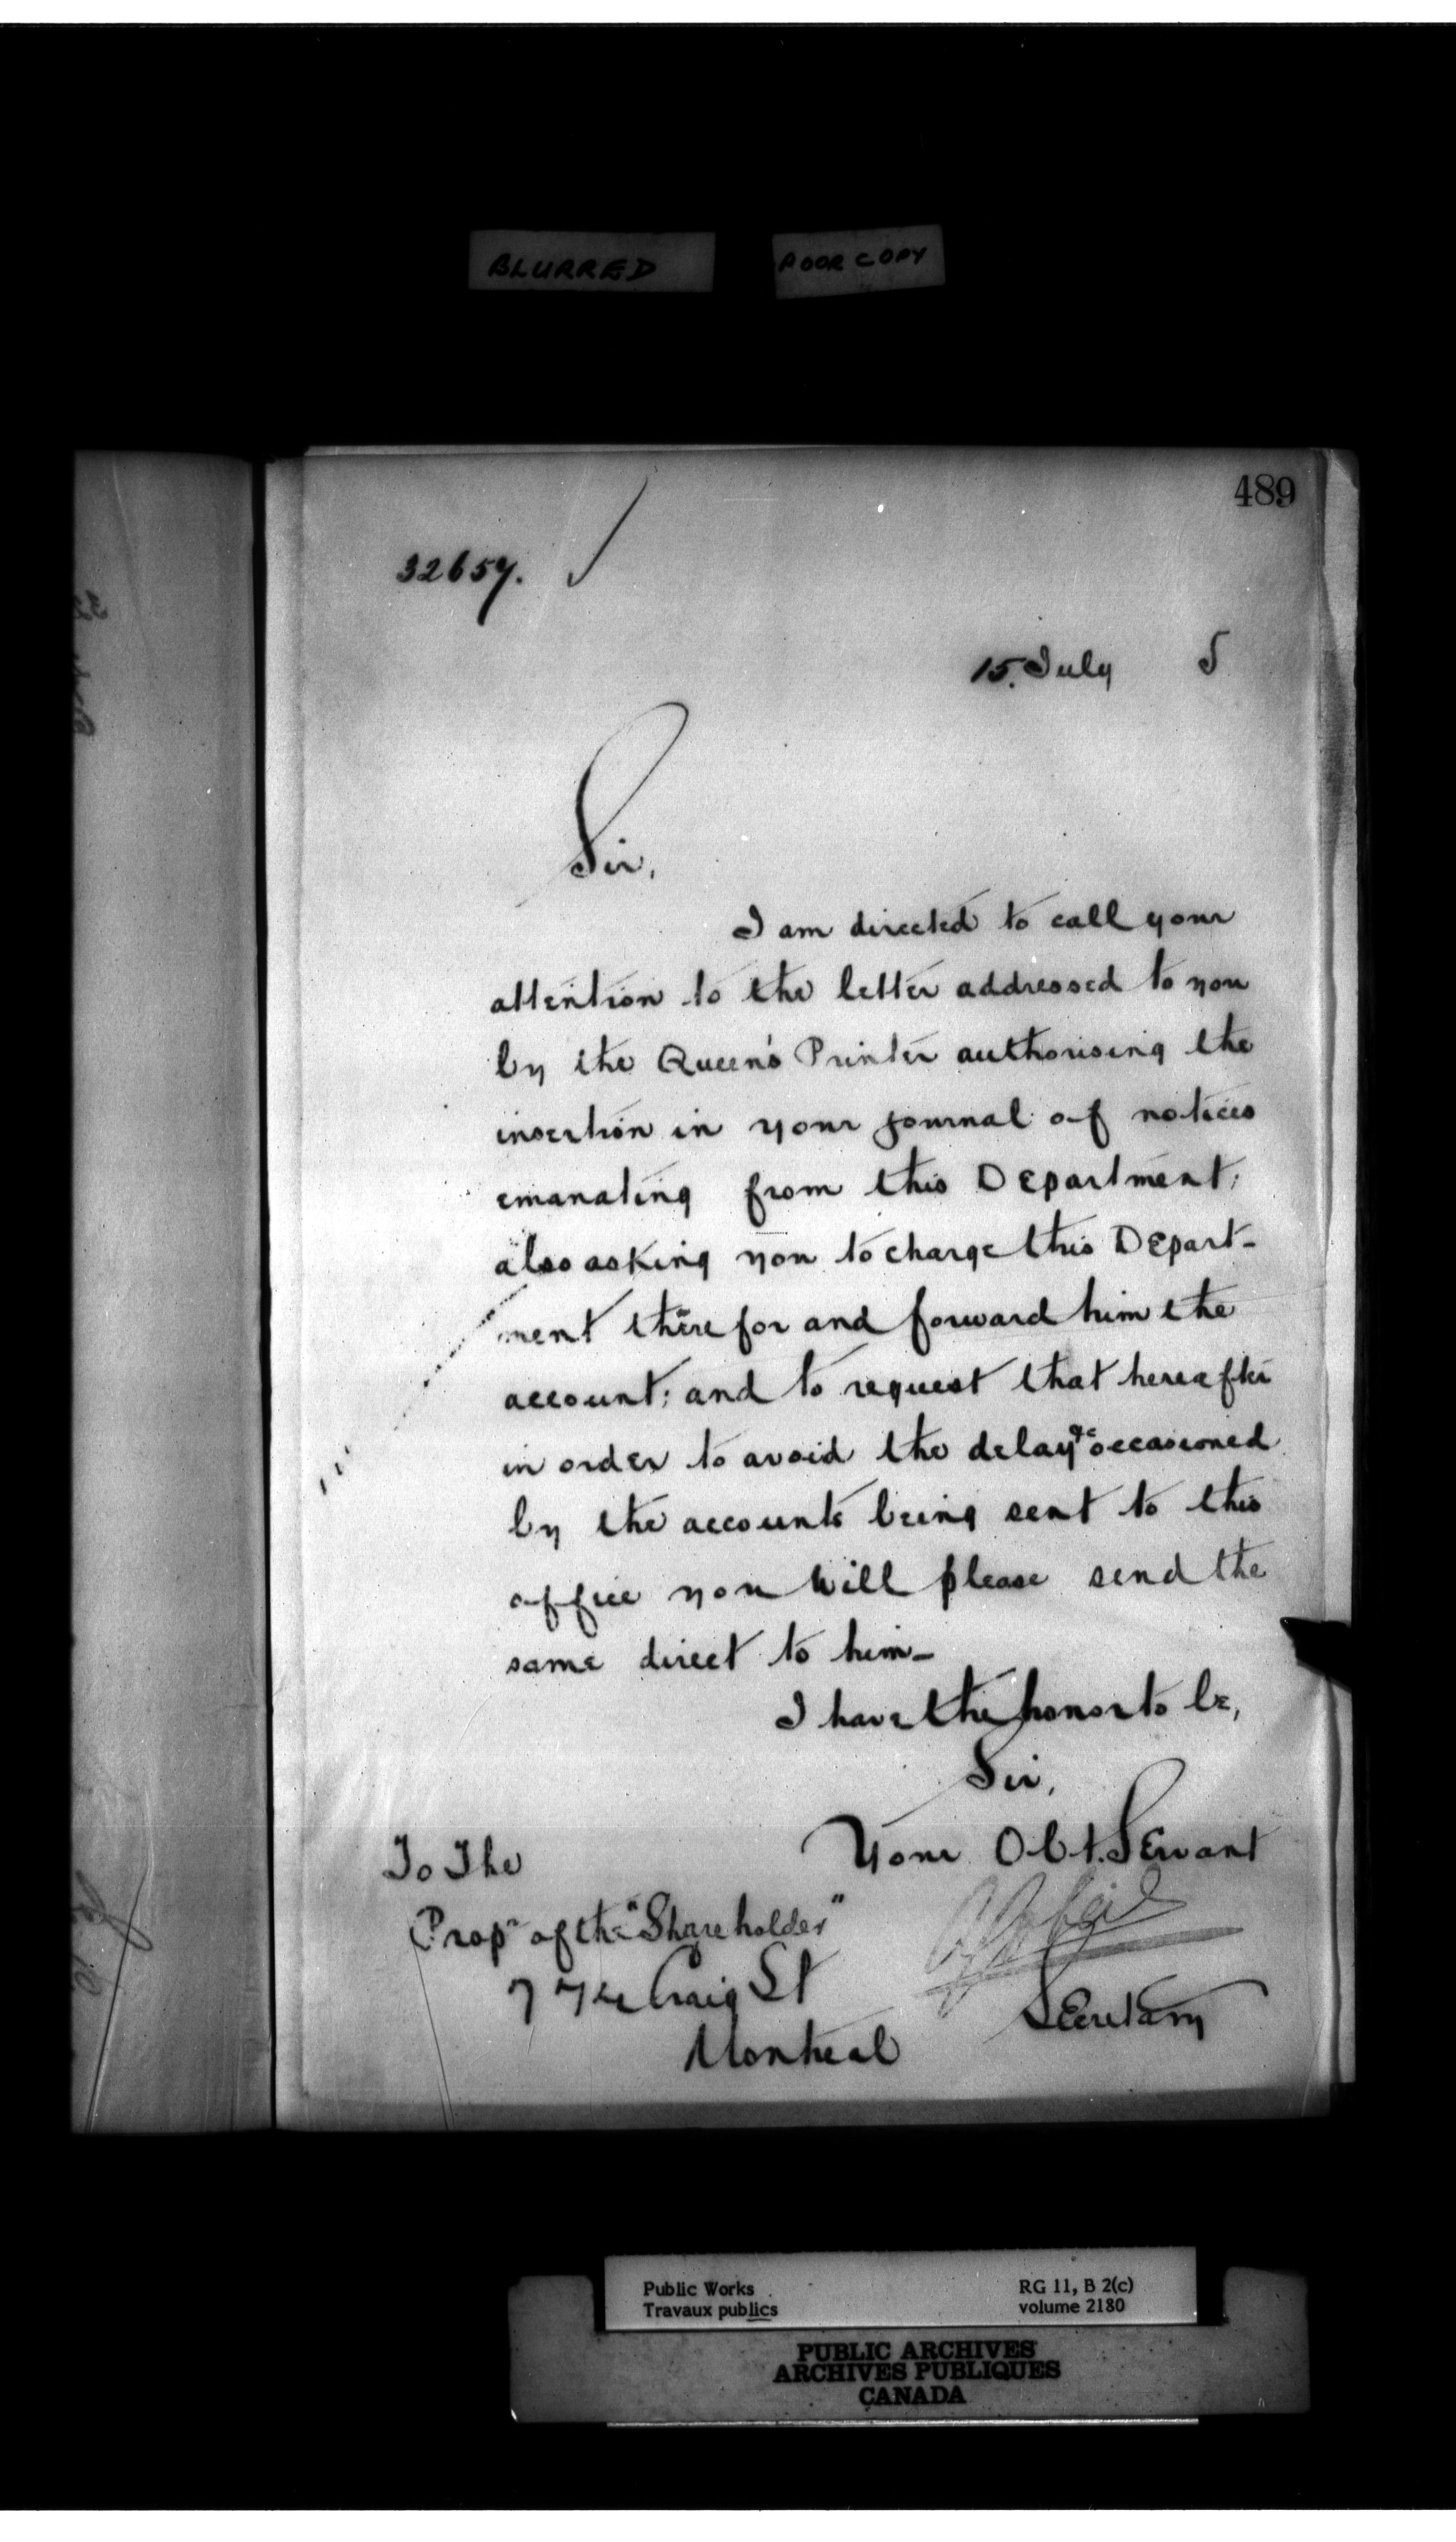 BLURRED POOR COPY
489
32657.
15. July 5
Sir,
I am directed to call your
attention to the letter addressed to you
by the Queen's Printer authorising the
insertion in your journal of notices
emanating from this Department;
also asking you to charge this Depart-
ment therefor and forward him the
account; and to request that hereafter
in order to avoid the delay &c occasioned
by the accounts being sent to this
office you will please send the
same direct to him -
I have the honor to be,
Sir,
Your Obt. Servant
Secretary
To The
Propr of the "Shareholder"
Craig St
Montreal
Public Works
Travaux publics
RG 11, B 2(c)
volume 2180
PUBLIC ARCHIVES
ARCHIVES PUBLIQUES
CANADA